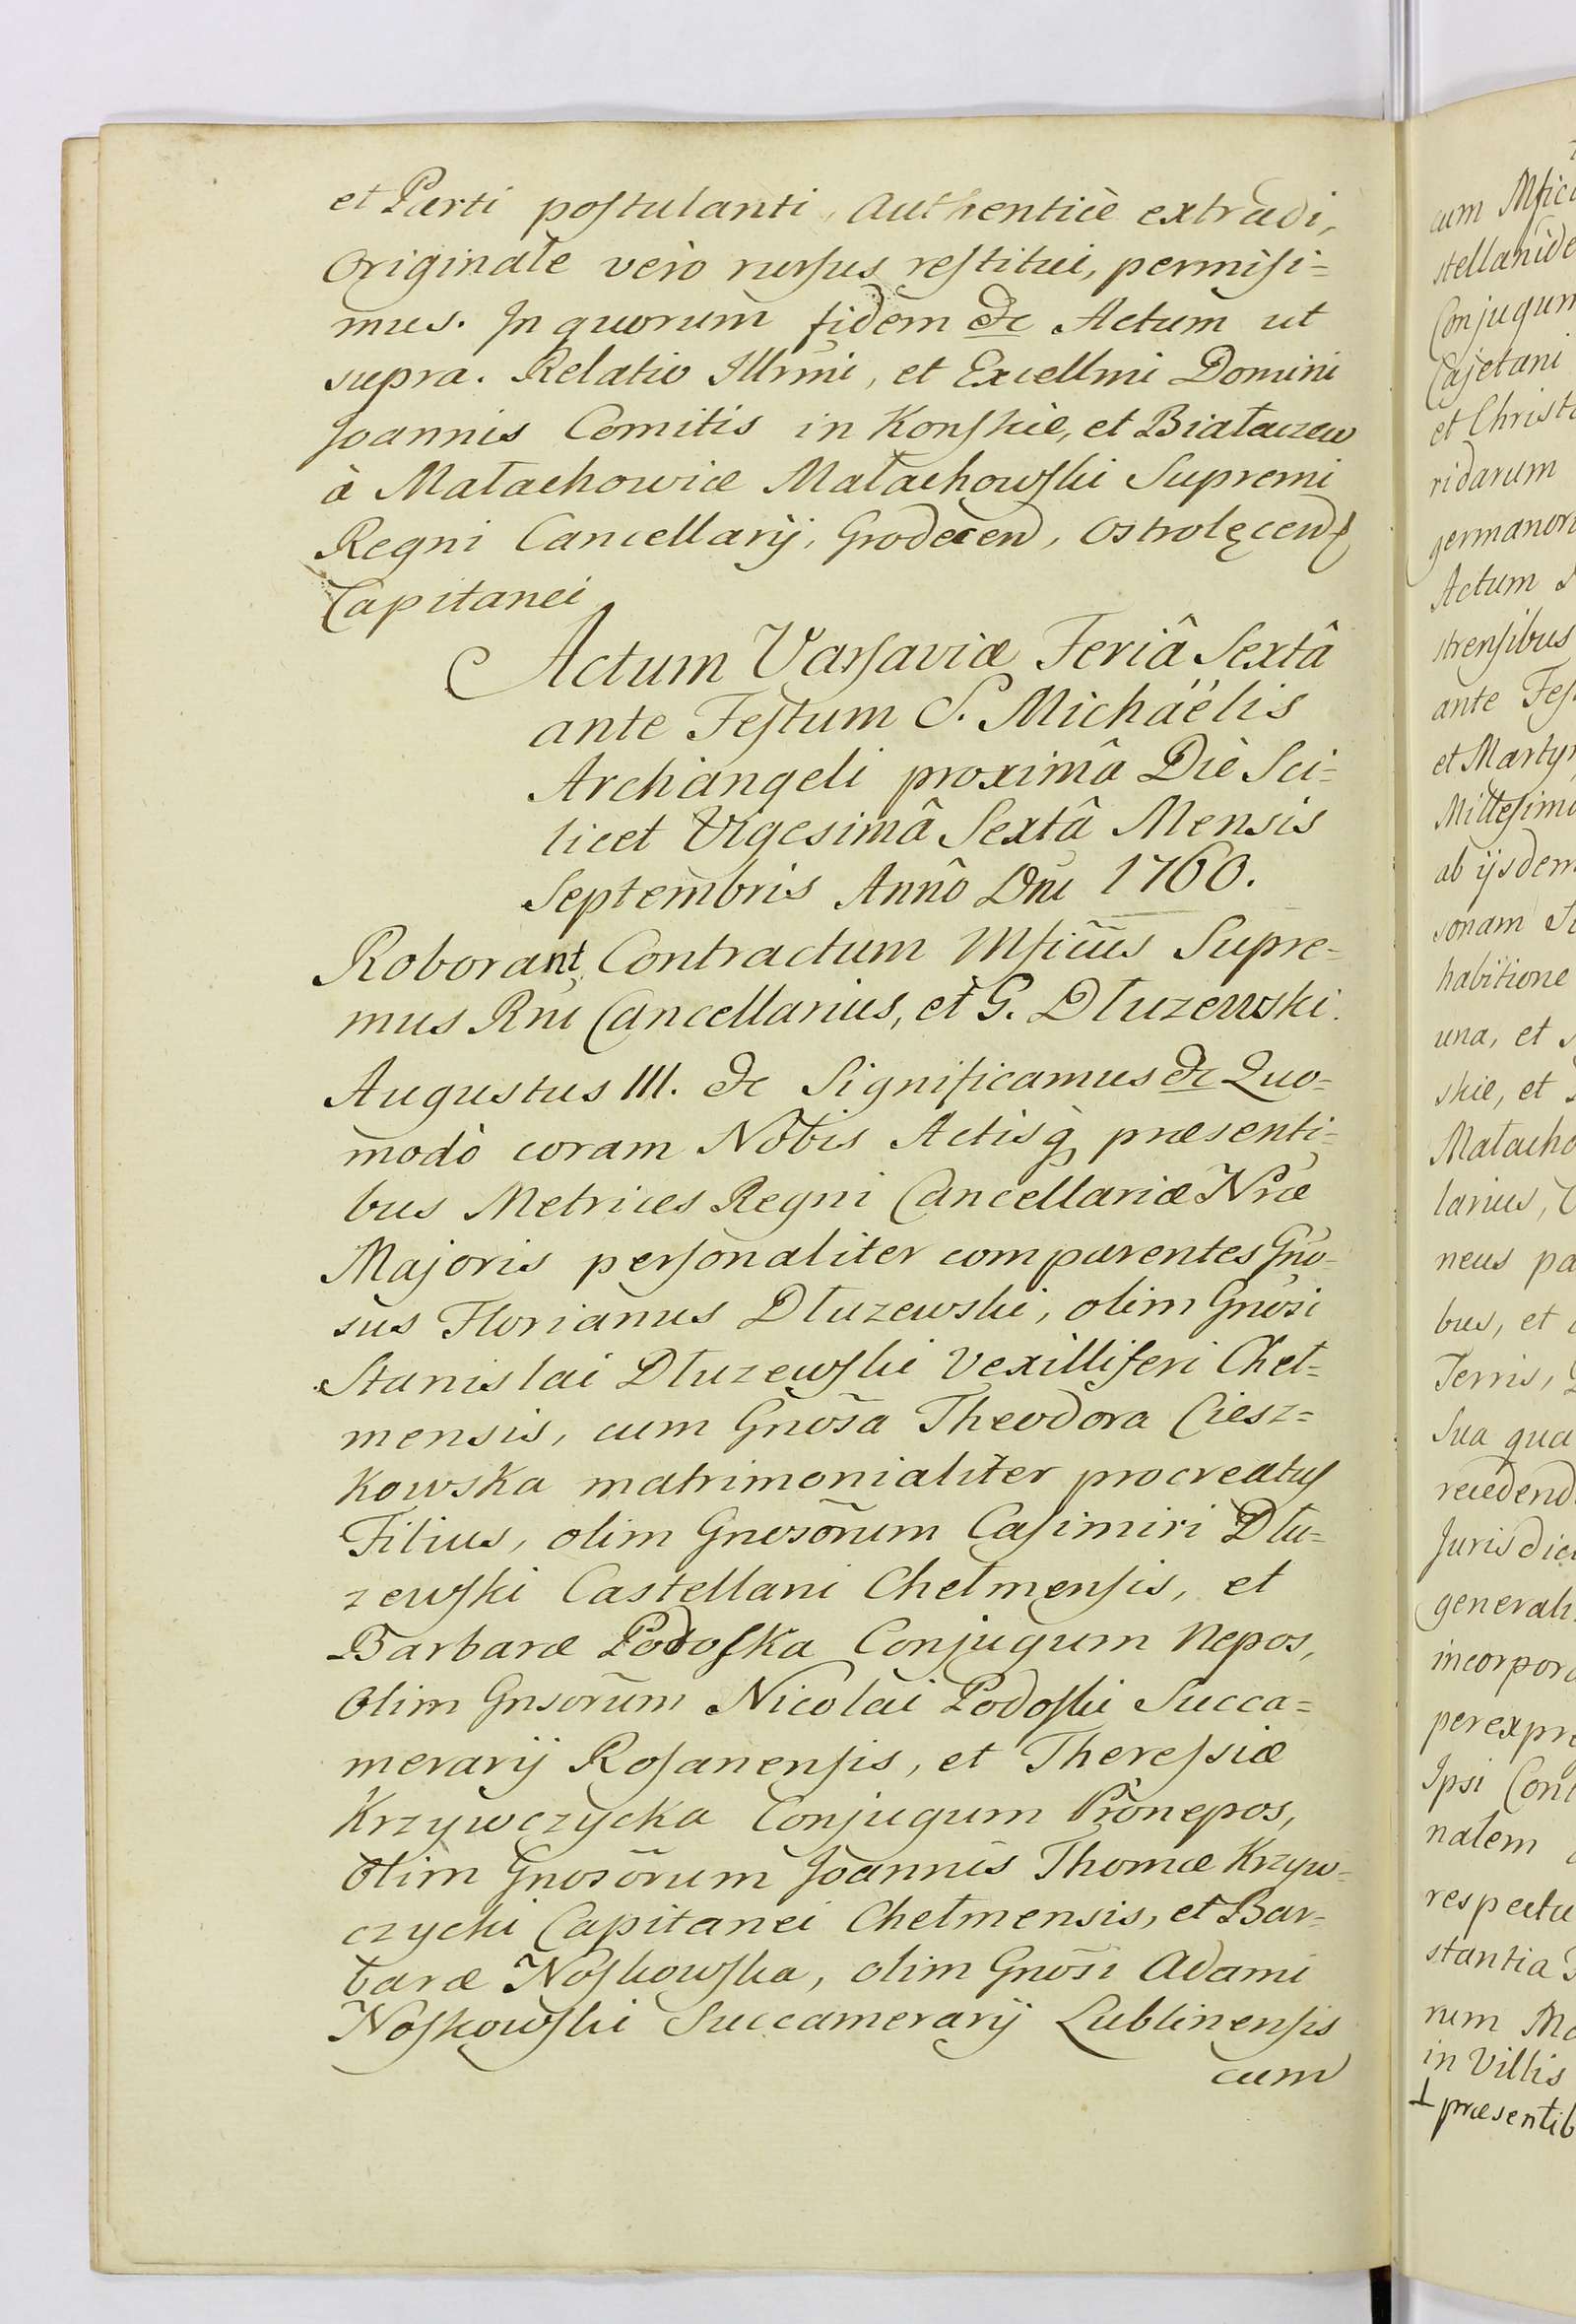 et Parti postulanti, Authenticè extradi,
Originale verò rursus restitui, permisi=
mus. In quorum fidem &c Actum ut
supra. Relatio Illrmi, et Excellmi Domini
Joannis Comitis in Konskie, et Białaczew
à Małachowice Małachowski Supremi
Regni Cancellarij, Grodecen, Ostrołęcen&
Capitanei
Actum Varsaviæ Feriâ Sextâ
ante Festum S. Michaëlis
Archangeli proximâ Die Sci=
licet Vigesimâ Sextâ Mensis
Septembris Annô Dni 1760.
Roborant Contractum Mficus Supre=
mus Rni Cancellarius, et G. Dłuzewski.
Augustus III. &c Significamus &c Quo=
modò coram Nobis Actisq̀ præsenti=
bus Metrices Regni Cancellariæ Nræ
Majoris personaliter comparentes Gno=
sus Florianus Dłuzewski, olim Gnosi
Stanislai Dłuzewski Vexilliferi Cheł=
mensis, cum Gnosa Theodora Ciesz=
kowska matrimonialiter procreatus
Filius, olim Gnosorum Casimiri Dłu=
zewski Castellani Chełmensis, et
Barbaræ Podoska Conjugum Nepos,
Olim Gnsorum Nicolai Podoski Succa=
merarij Rosanensis, et Theressiæ
Krzywczycka Conjugum Pronepos,
Olim Gnosorum Joannis Thomæ Krzyw=
czycki Capitanei Chełmensis, et Bar=
baræ Noskowska, olim Gnosi Adami
Noskowski Succamerarij Lublinensis
cum
cum Mfici
stellanide
Conjugum
Cajetani
et Christo
ridarum
germanor
Actum
strensibus
ante Fes
et Martyr
Millesimo
ab ijsdem
sonam
habitione
una, et
skie, et
Małacho
larius,
neus pa
bus, et
Terris,
Sua qua
recedend
Jurisdic
generali
incorpor
per expre
Ipsi Con
nalem
respectu
stantia
rum Ma
in Villis
præsentib